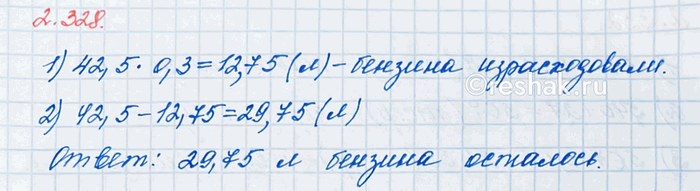 2.328.
1) 42,5 · 0,3 = 12,75 (л) – бензина израсходовали.
2) 42,5 – 12,75 = 29,75 (л)
Ответ: 29,75 л бензина осталось.
©reshak.ru